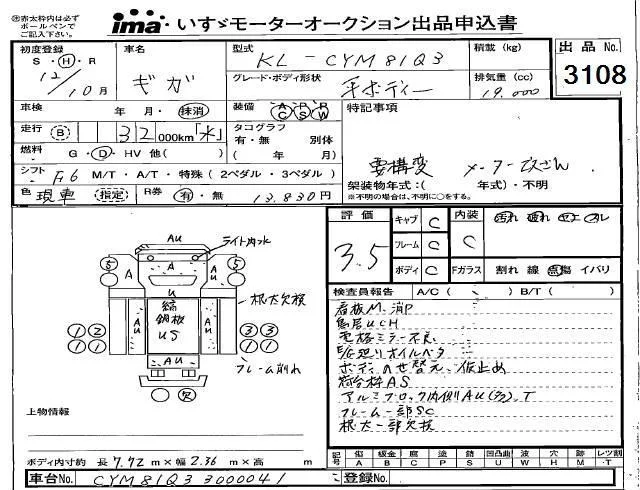 ※赤太枠内は必ず
ボールペンで
ご記入下さい。
ima いすゞモーターオークション出品申込書
初度登録
S・H・R
12/10月
車名
ギガ
型式
KL-CYM81Q3
グレード・ボディ形状
平ボディー
積載 (kg)
排気量 (cc)
19,000
出品 No.
3108
車検
年 月・抹消
装備
A P R
C S W
特記事項
走行 B 32 000km「メ」
タコグラフ
有・無 別体
( 年 月)
燃料
G・D・HV 他( )
シフト F.6 M/T・A/T・特殊(2ペダル・3ペダル)
要構変 メーター改ざん
架装物年式:( 年式)・不明
※不明の場合は、不明に○をする。
色 現車 (指定)
R券 有・無 13,830円
評価
3.5
キャブ C
フレーム C
ボディ C
内装 C
Fガラス
汚れ 破れ コゲ スレ
割れ 線 点傷 イバリ
検査員報告 A/C ( ) B/T ( )
看板M.消P
鳥居UCH
電格ミラー不良
E/G廻りオイルベタ
ボデーのせ替え、仮止め
荷台枠AS
アルミブロック内側AU(多).T
フレーム一部SC
根太一部欠損
ライト内水
AU
A
A
A
U
5
5
縞
鋼板
US
AU
AU
AU
根太欠損
フレーム削れ
1 2
1 1
3 3
1 1
欠
上物情報
ボディ内寸約 長 7.72 m×幅 2.36 m×高 m
記号 傷 A 板金 B 腐 C 塗 P 錆 S 凹凸曲 U 波 W 穴 H 跡 M レツ割 ・T
車台No. CYM81Q3 3000041
登録No.